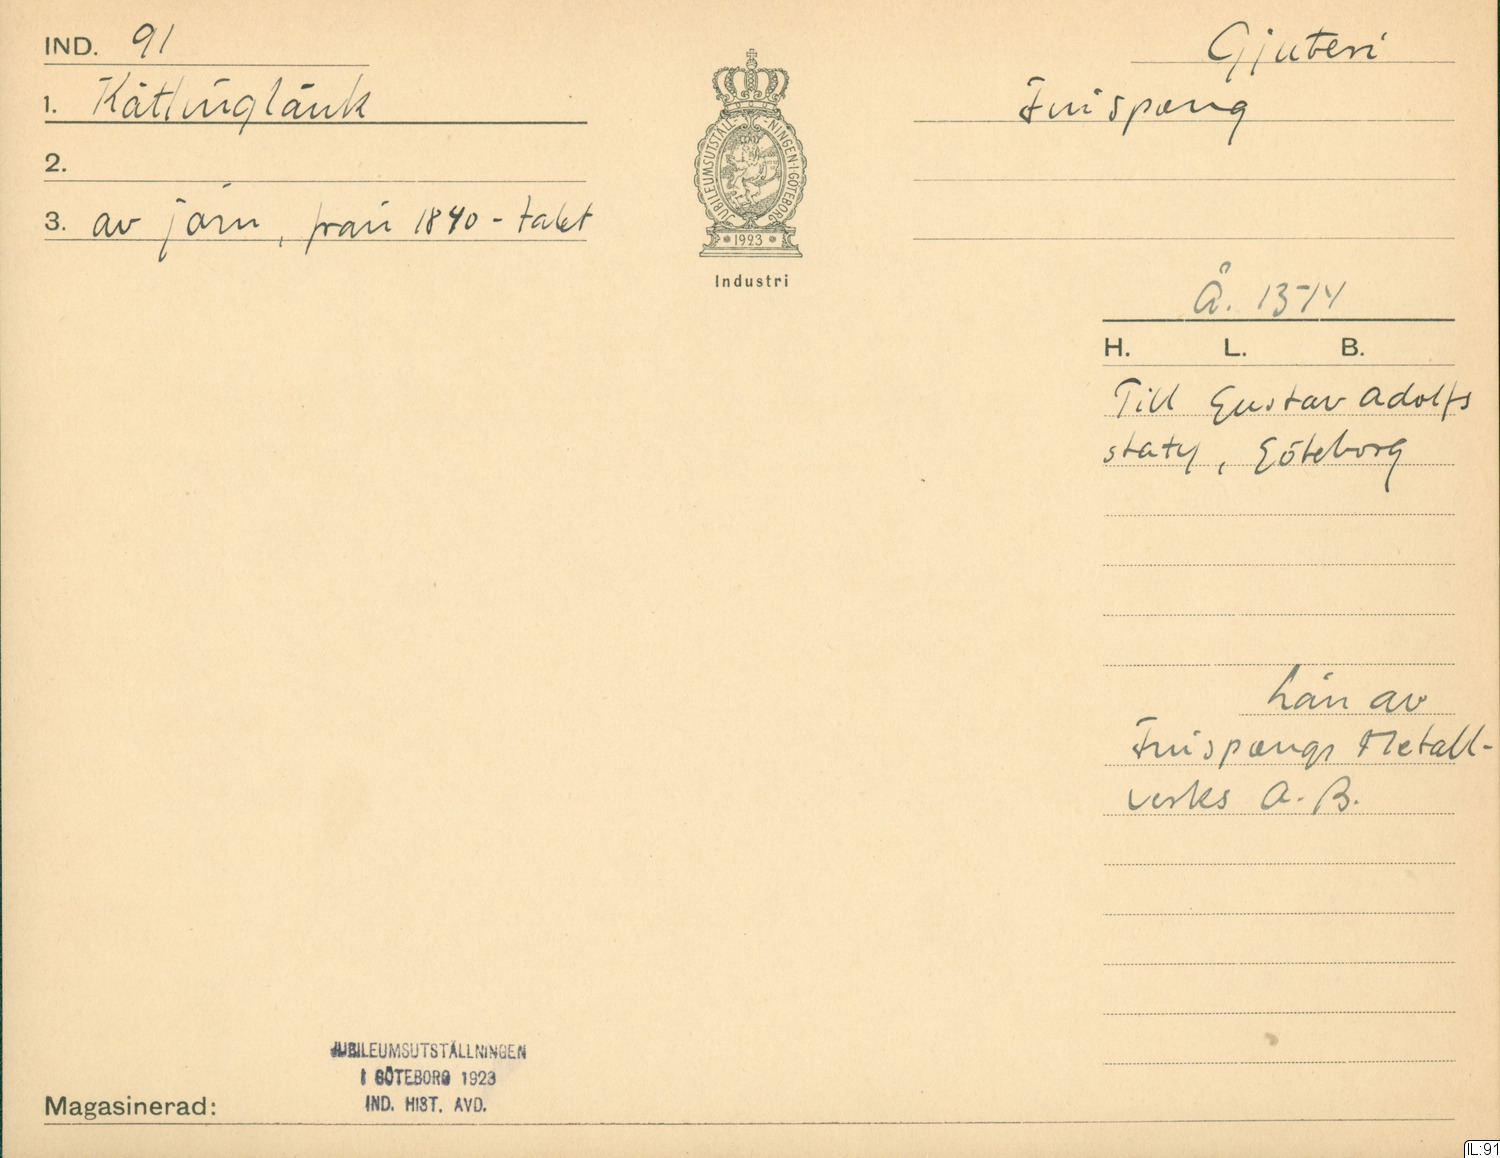 IND. 91
1. Kättinglänk
2.
3. av järn, från 1840-talet
JUBILEUMSUTSTÄLLNINGEN I GÖTEBORG
1923
Industri
Gjuteri
Finspong
Å. 1374
H. L. B.
Till Gustav Adolfs
staty, Göteborg
Lån av
Finspongs Metall-
verks A.-B.
JUBILEUMSUTSTÄLLNINGEN
I GÖTEBORG 1923
IND. HIST. AVD.
Magasinerad:
IL:91